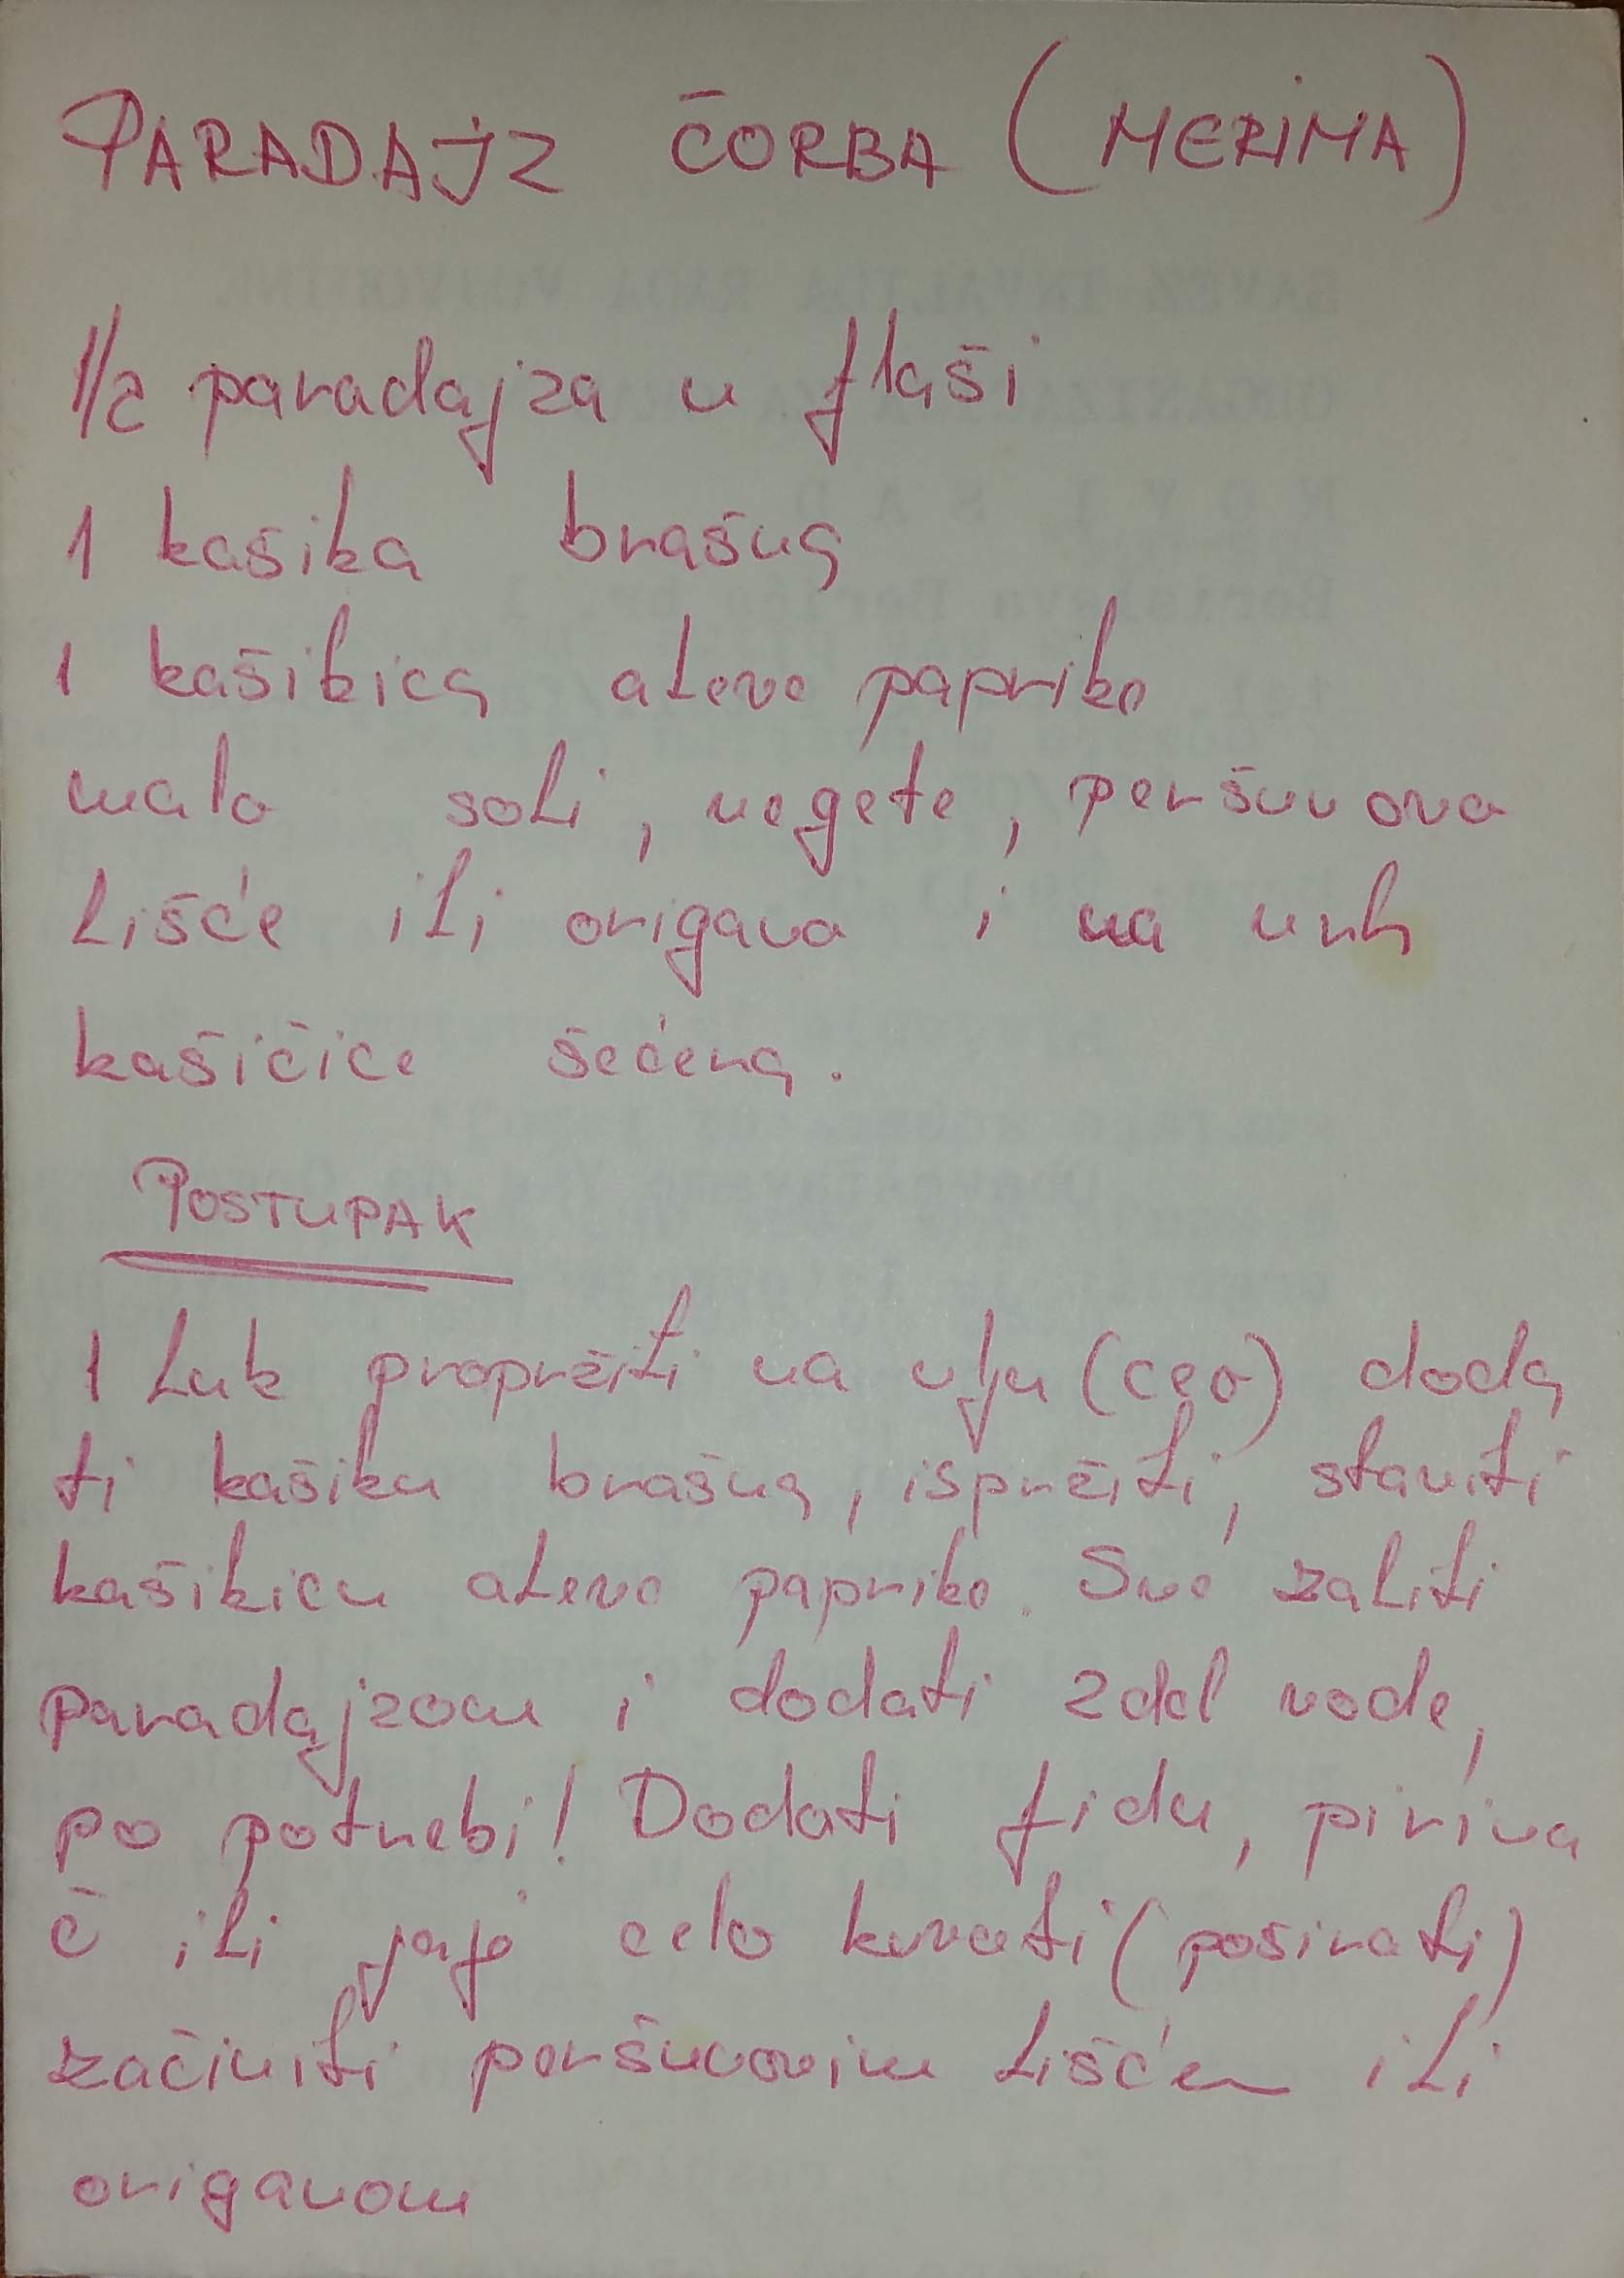 PARADAJZ ČORBA (MERIMA)
1/2 paradajza u flaši
1 kašika brašna
1 kašikica aleve paprike
malo soli, vegete, peršunova
lišće ili origana i na vrh
kašičice šećera.
POSTUPAK
1 luk propržiti na ulju (ceo) doda
ti kašiku brašna, ispržiti, staviti
kašikicu aleve paprike. Sve zaliti
paradajzom i dodati 2 dcl vode,
po potrebi! Dodati fidu, pirina
č ili jaje celo kuvati (poširati)
začiniti peršunovim lišćem ili
origanom